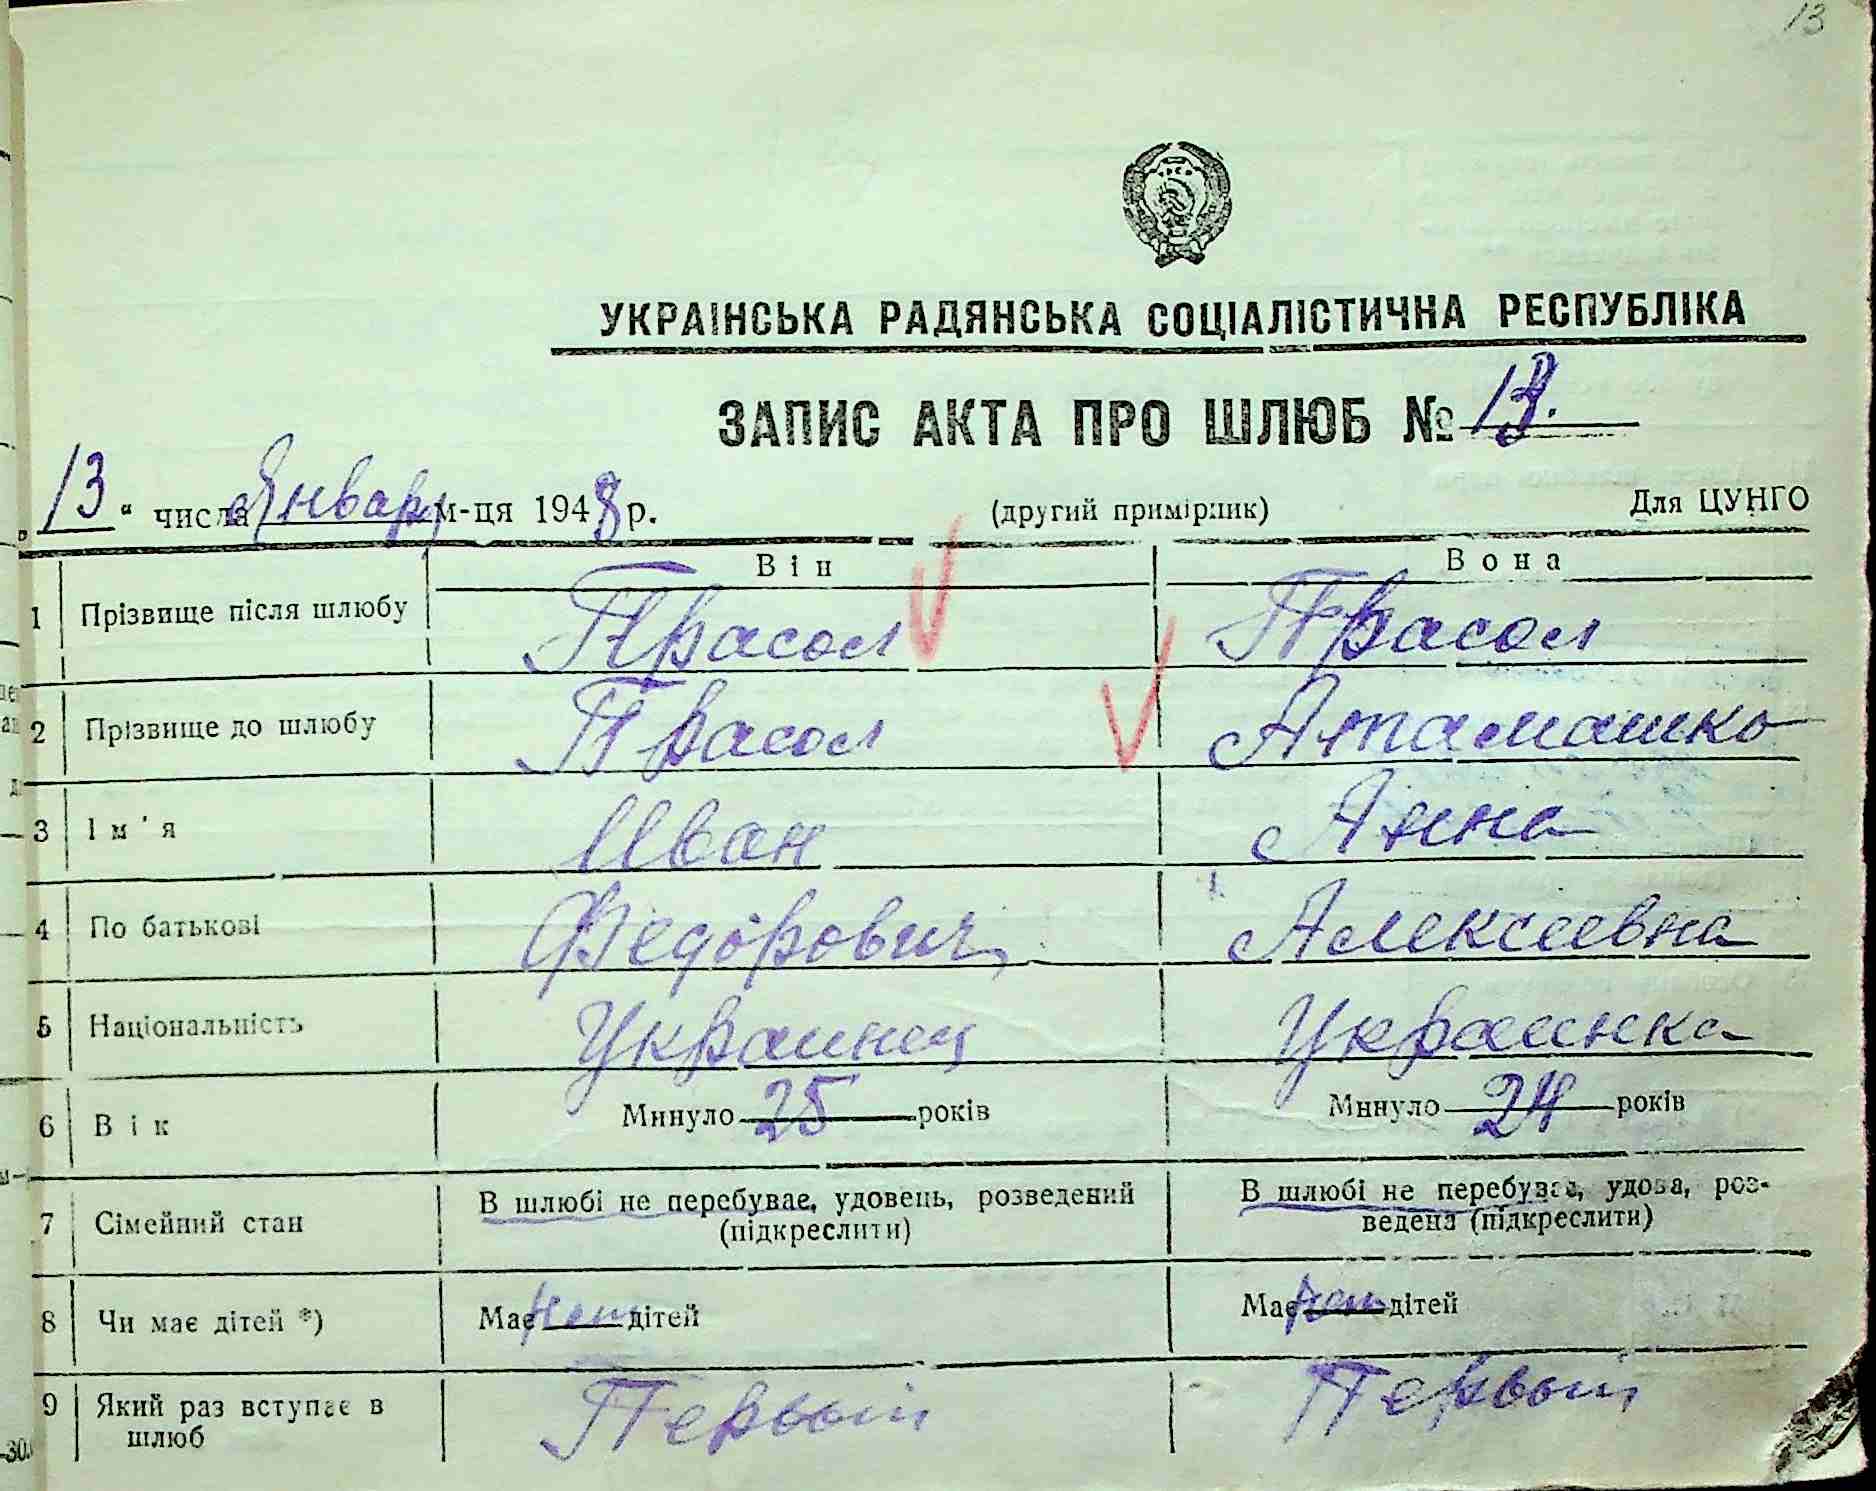 13
УКРАЇНСЬКА РАДЯНСЬКА СОЦІАЛІСТИЧНА РЕСПУБЛІКА
ЗАПИС АКТА ПРО ШЛЮБ № 13.
„13“ числа Января м-ця 1948 р. (другий примірник) Для ЦУНГО
Він Вона
1 Прізвище після шлюбу Прасол Прасол
2 Прізвище до шлюбу Прасол Атамашко
3 Ім'я Иван Анна
4 По батькові Федорович Алексеевна
5 Національність Украинец Украинка
6 Вік Минуло 25 років Минуло 24 років
7 Сімейний стан В шлюбі не перебуває, удовець, розведений (підкреслити) В шлюбі не перебуває, удова, розведена (підкреслити)
8 Чи має дітей *) Має нет дітей Має нет дітей
9 Який раз вступає в шлюб Первый Первый